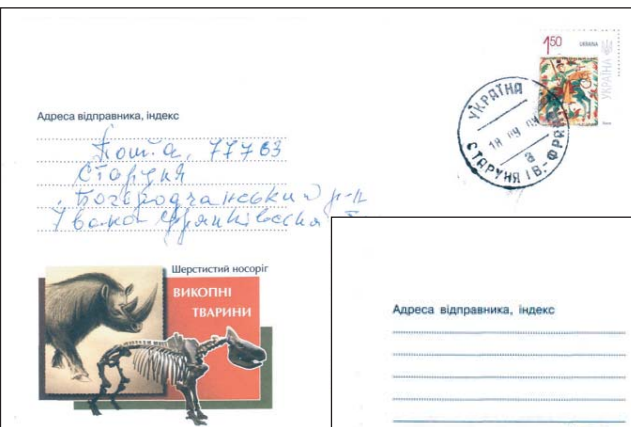 1.50
UKRAINA
УКРАЇНА
УКРАЇНА
18 09
а
СТАРУНЯ ІВ.-ФРА
Адреса відправника, індекс
Пошта, 77763
Старуня
Богородчанський р-н
Івано-Франківська
Шерстистий носоріг
ВИКОПНІ
ТВАРИНИ
Адреса відправника, індекс